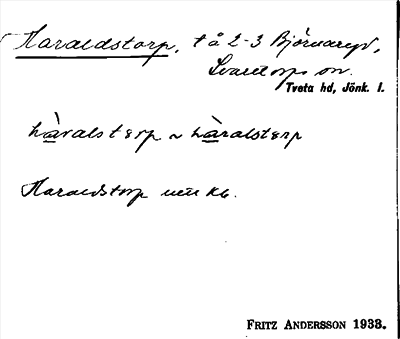 Haraldstorp, t å 2-3 Björnaryd,
Svarttorps sn.
Tveta hd, Jönk. l.
hàralstɛrp ~ hàralstɛrp
Haraldstorp kb.
FRITZ ANDERSSON 1933.